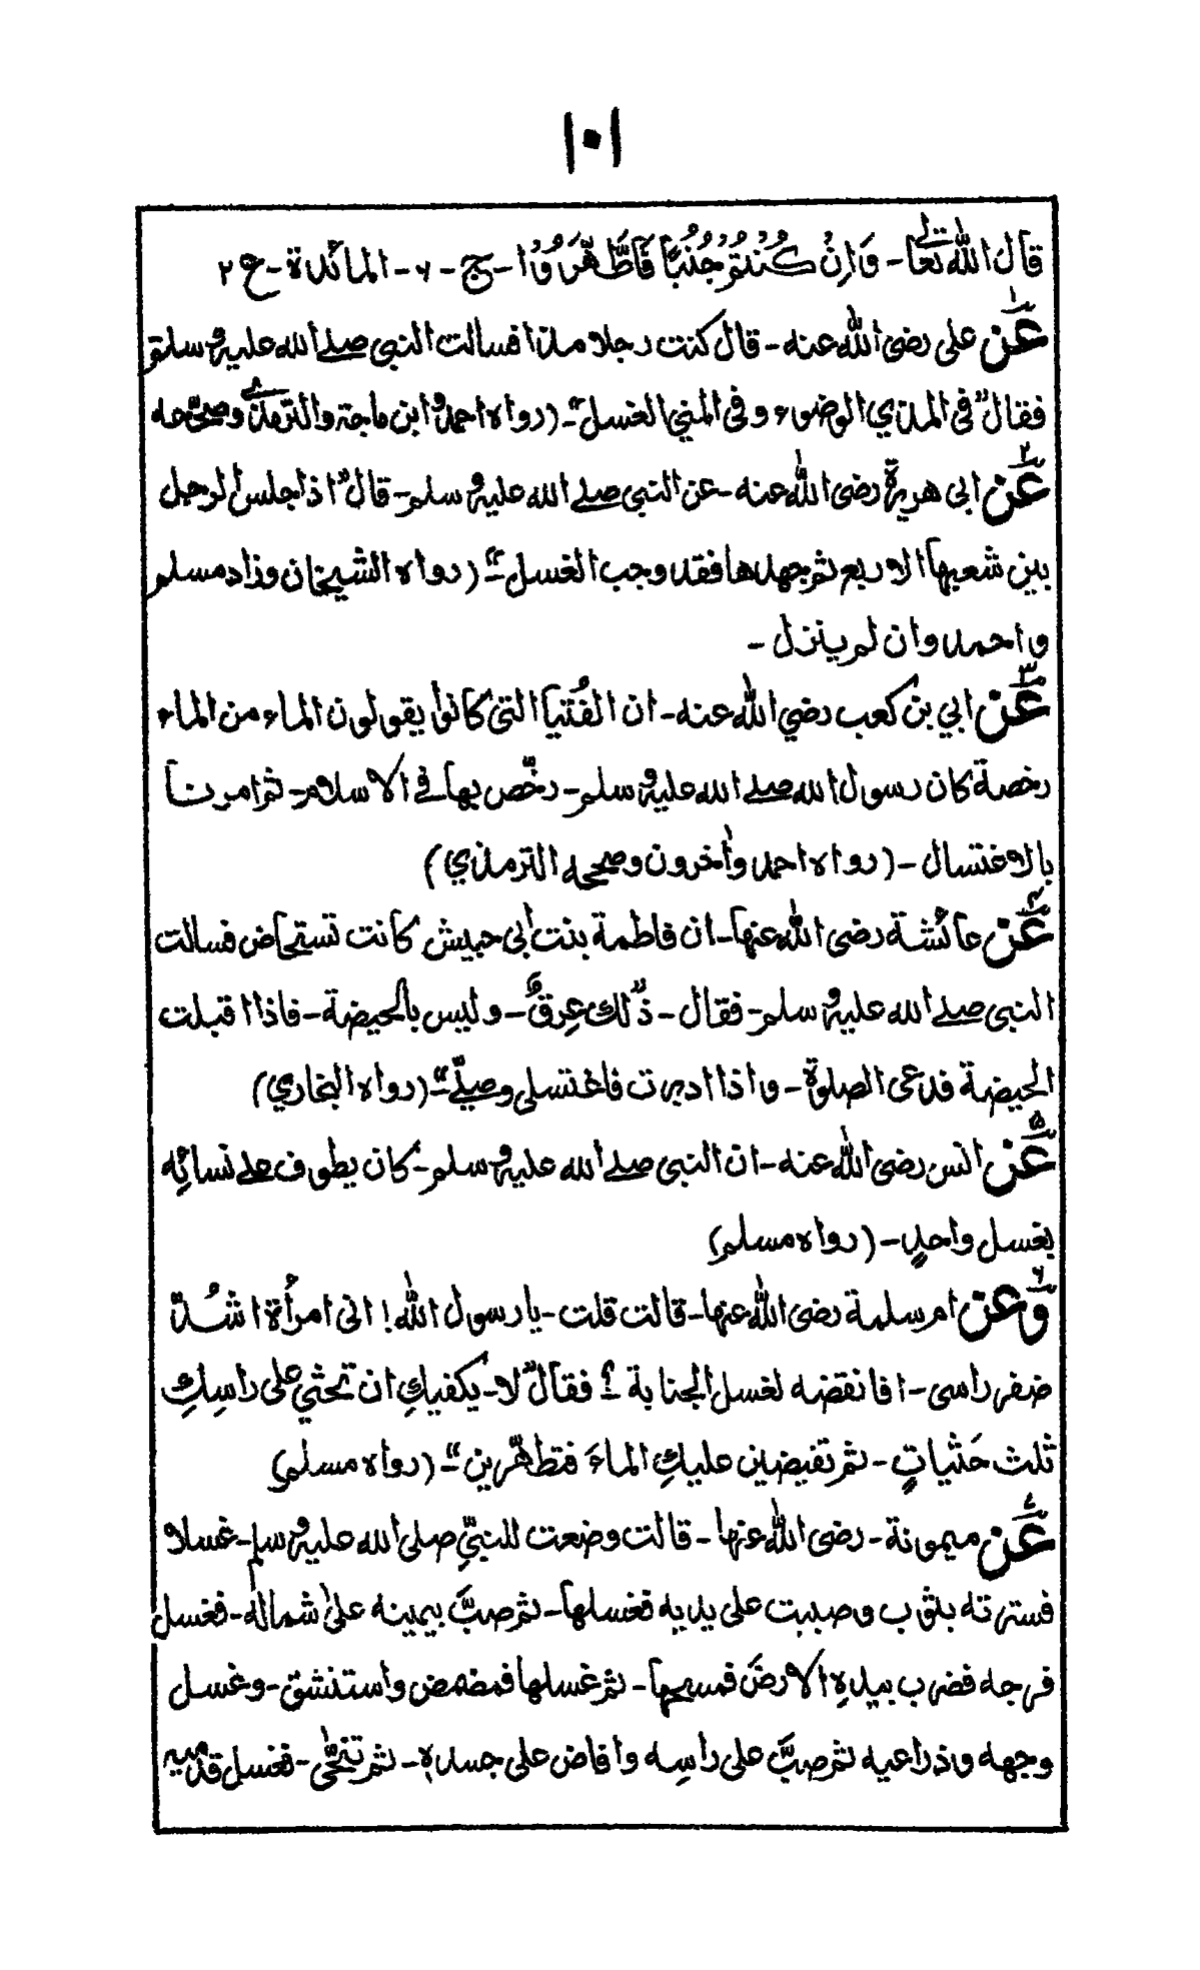 ١٠١
قال الله تعالى - وَاِنْ كُنْتُمْ جُنُبًا فَاطَّهَّرُوْا - ج - ٦ - المائدة - ع ٢
١
عَن على رضى الله عنه - قال كنت رجلا مذا فسالت النبى صلے الله عليه وسلم
فقال " فى المذي الوضوء وفى المني الغسل " - (رواه احمد وابن ماجة والترمذى وصحّحه
٢
عَن ابى هريرة رضى الله عنه - عن النبى صلے الله عليه وسلم - قال " اذا جلس الرجل
بين شعبها الاربع ثم جهدها فقد وجب الغسل " - (رواه الشيخان وزاد مسلم
واحمد وان لم ينزل -
٣
عَن ابي بن كعب رضي الله عنه - ان الفُتيا التى كانوا يقولون الماء من الماء
رخصة كان رسول الله صلے الله عليه وسلم - رخّص بها فے الاسلام - ثم امرنا
بالاغتسال - (رواه احمد واٰخرون وصححه الترمذي)
٤
عَن عائشة رضى الله عنها - ان فاطمة بنت ابى حبيش كانت تستحاض فسالت
النبى صلے الله عليه وسلم - فقال - " ذٰلك عِرقٌ - وليس بالحيضة - فاذا اقبلت
الحيضة فدعى الصلوة - واذا ادبرت فاغتسلى وصلّے " - (رواه البخاري)
٥
عَن انس رضى الله عنه - ان النبى صلے الله عليه وسلم - كان يطوف علے نسائِه
بغسل واحدٍ - (رواه مسلم)
٦
وَعن ام سلمة رضى الله عنها - قالت قلت - يا رسول الله! انى امرأة اشُدّ
ضفر راسى - افانقضه لغسل الجنابة ؟ فقال " لا - يكفيكِ ان تحثي على راسِكِ
ثلث حَثياتٍ - ثم تفيضين عليكِ الماءَ فتطهّرين " - (رواه مسلم)
٧
عَن ميمونة - رضى الله عنها - قالت وضعت للنبيّ صلى الله عليه وسلم - غسلا
فسترته بثوب وصببت على يديه فغسلها - ثم صبَّ بيمينه علىٰ شماله - فغسل
فرجه فضرب بيدهِ الارضَ فمسحها - ثم غسلها فمضمض واستنشق - وغسل
وجهه وذراعيه ثم صبَّ على راسِه وافاض على جسدهٖ - ثم تنحّٰى - فغسل قدميه